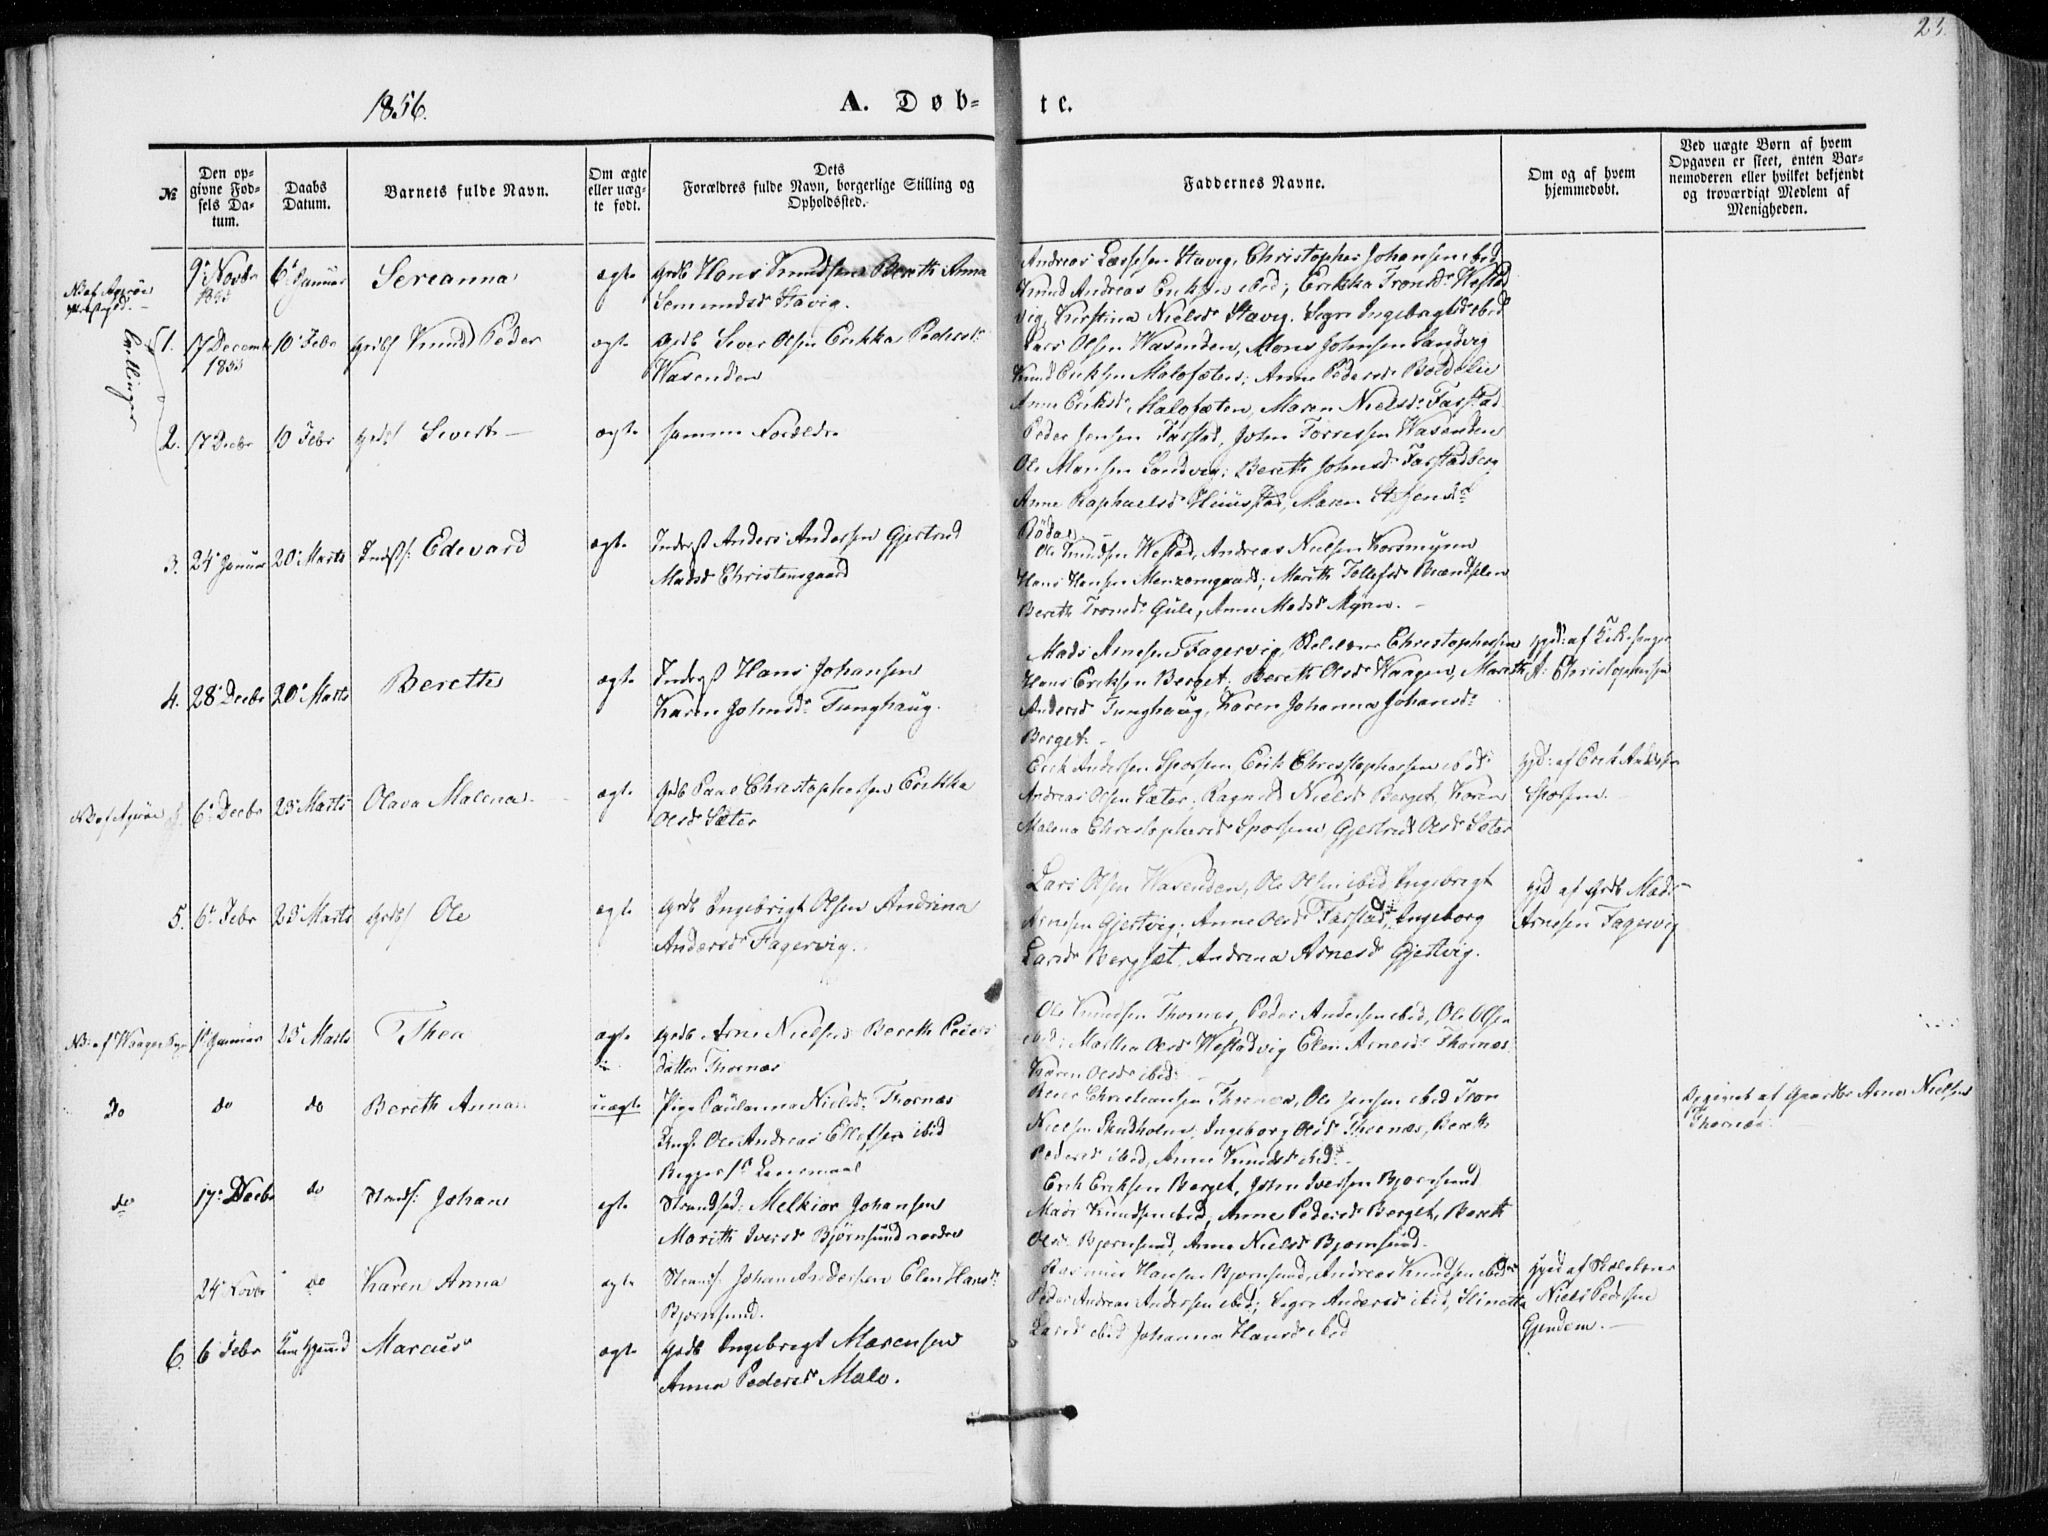 23.
1856.
A. Døb-
te.
№
Den op-
givne Fød-
sels Da-
tum.
Daabs
Datum.
Barnets fulde Navn.
Om ægte
eller uæg-
te født.
Dets
Forældres fulde Navn, borgerlige Stilling og
Opholdssted.
Faddernes Navne.
Om og af hvem
hjemmedøbt.
Ved uægte Børn af hvem
Opgaven er skeet, enten Bar-
nemoderen eller hvilket bekjendt
og troværdigt Medlem af
Menigheden.
9de Novbr 6te Januar Sereanna ægte Grdb Hans Knudsen Bereth Anna
1855
Semundsd Stavig.
Andreas Lassesen Stavig, Christopher Johansen ibid
Knud Andreas Eriksen ibid; Erikka Tronsd Westad
vig, Kirstina Nielsd Stavig.
Tvillinger
1. 17 Decemb 10 Febr Grdbs Knud Peder ægte Grdb Siver Olsen Erikka Pedersd
1855
Wasenden
Lars Olsen Wasenden, Mons Johnsen Sandvig
Knud Eriksen Malosæter; Anne Pedersd Boldelie
Anne Eriksd Malosæter, Maren Nielsd Farstad
2. 17 Decbr 10 Febr Grdbs Sivert ægte samme Forældre
Peder Jensen Farstad, John Torressen Wasenden
Ole Monsen Sandvig; Bereth Johnsd Farstadberg
Anne Raphaelsd Huustad, Maren Steffensd
Rødal
3. 24 Januar 20 Marts Inds: Edevard ægte Inderst Anders Andersen Gjertrud
Madsd Christensgaard
Ole Knudsen Westad, Andreas Nielsen Korsmyren
Hans Hansen; Marith Tollefsd Brændslen
Bereth Tronsd Gule, Anne Madsd Myren.
4. 28 Decbr 20 Marts Bereth ægte Inderst Hans Johansen
Karen Johnsd Tunghaug.
Mads Arnesen Fagervig, Christophersen
Hans Eriksen Berget; Bereth Olsd Waagen, Marith
Andersd Tunghaug, Karen Johanna Johansd
Berget.
Hjd: af Kirkesanger
A: Christophersen
6te Decbr 23 Marts Olava Malena ægte Grdb Paul Christophersen Erikka
Olsd Sæter
Erik Andersen Sporsem, Erik Christophersen ibid
Andreas Olsen Sæter; Ragnild Nielsd Berget, Karen
Malena Christophersd Sporsem, Gjertrud Olsd Sæter
Hjd: af Erik Andersen
Sporsem.
5. 6te Febr 23 Marts Grdbs Ole ægte Grdb Ingebrigt Olsen Andrina
Andersd Fagervig.
Lars Olsen Wasenden, Ole Olsen ibid, Ingebrigt
Arnesen Gjertvig; Anne Olsd Farstad, Ingeborg
Larsd Bergsæt, Andrina Arnesd Gjertvig.
Hjd af Grdb Mads
Arnesen Fagervig
1 Januar 23 Marts Thea ægte Grdb Arne Nielsen Bereth Peders
datter Thornæs
Ole Knudsen Thornæs, Peder Andersen ibid, Ole Olsen
ibid; Martha Olsd Westadvig Elen Arnesd Thornæs
Karen Olsd ibid
do do do Bereth Anna uægte Pige Paulanna Nielsd Thornæs
Ungk: Ole Andreas Ellefsen ibid
Begges 1ste Leiermaal
Christiansen Thornæs, Ole Jensen ibid Tron
Nielsen Skudholm, Ingeborg Olsd Thornæs, Bereth
Pedersd ibid, Anne Knudsd ibid
Opgivet af Gaardbr Arne Nielsen
Thornæs
do 17 Decbr do Strands: Johan ægte Strandsid: Melkior Johansen
Marith Iversd Bjørnsund nordre
Erik Eriksen Berget, John Iversen Bjørnsund
Mads Knudsen ibid; Anne Pedersd Berget, Bereth
Olsd Bjørnsund, Anne Nielsd Bjørnsund.
24 Novbr do Karen Anna ægte Strands: Johan Andersen Elen Hansd
Bjørnsund.
Rasmus Hansen Bjørnsund, Andreas Knudsen ibid
Peder Andreas Andersen ibid; Andersd ibid,
Larsd ibid Johanna Hansd ibid
Hjd af Skolelærer
Niels Pedersen
Gjendem.
6. 6 Febr Marcus ægte Grdb Ingebrigt Marensen
Anna Pedersd Malo.